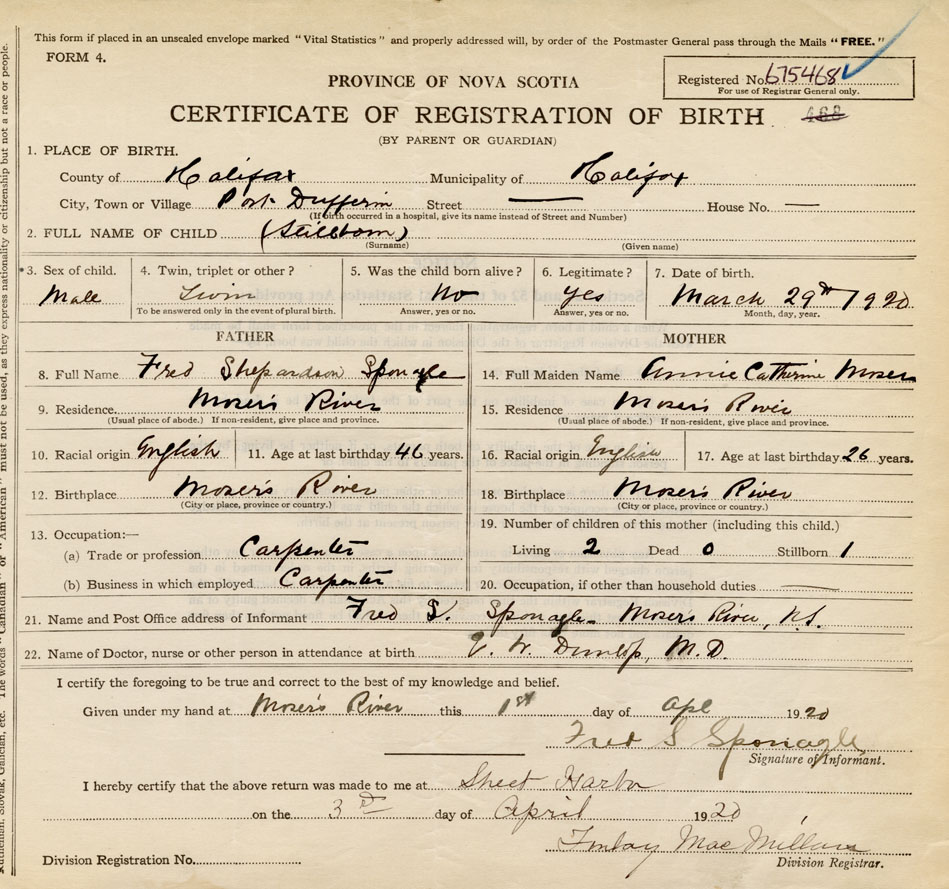 This form if placed in an unsealed envelope marked "Vital Statistics" and properly addressed will, by order of the Postmaster General pass through the Mails "FREE."
FORM 4.
Registered No. 675468
For use of Registrar General only.
PROVINCE OF NOVA SCOTIA
CERTIFICATE OF REGISTRATION OF BIRTH 488
(BY PARENT OR GUARDIAN)
1. PLACE OF BIRTH.
County of Halifax Municipality of Halifax
City, Town or Village Port Dufferin Street — House No. —
(If birth occurred in a hospital, give its name instead of Street and Number)
2. FULL NAME OF CHILD (Stillborn)
(Surname) (Given name)
*3. Sex of child. 4. Twin, triplet or other? 5. Was the child born alive? 6. Legitimate? 7. Date of birth.
Male Twin No Yes March 29th 1920
To be answered only in the event of plural birth. Answer, yes or no. Answer, yes or no. Month, day, year.
FATHER MOTHER
8. Full Name Fred Shepardson Sponagle 14. Full Maiden Name Annie Catherine Moser
9. Residence Moser's River 15. Residence Moser's River
(Usual place of abode.) If non-resident, give place and province. (Usual place of abode.) If non-resident, give place and province.
10. Racial origin English 11. Age at last birthday 46 years. 16. Racial origin English 17. Age at last birthday 26 years.
12. Birthplace Moser's River 18. Birthplace Moser's River
(City or place, province or country.) (City or place, province or country.)
13. Occupation:— 19. Number of children of this mother (including this child.)
(a) Trade or profession Carpenter Living 2 Dead 0 Stillborn 1
(b) Business in which employed Carpenter 20. Occupation, if other than household duties
21. Name and Post Office address of Informant Fred S. Sponagle Moser's River, N.S.
22. Name of Doctor, nurse or other person in attendance at birth W. Dunlop, M.D.
I certify the foregoing to be true and correct to the best of my knowledge and belief.
Given under my hand at Moser's River this 1st day of Apl 1920
Fred S Sponagle
Signature of Informant.
I hereby certify that the above return was made to me at Sheet Harbor
on the 3rd day of April 1920
Finlay MacMillan
Division Registration No. Division Registrar.
Ruthenian, Slovak, Galician, etc. The words "Canadian" or "American" must not be used, as they express nationality or citizenship but not a race or people.